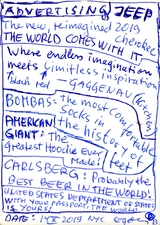 ADVERTISING JEEP
The new, reimagined 2019
Cherokee
THE WORLD COMES WITH IT
Where endless imagination
meets limitless inspiration
GAGGENAU (Kitchen)
BOMBAS: the most comfy
socks in the history of feet
AMERICAN GIANT: The
greatest Hoodie Ever
Made!
CARLSBERG: Probably the
BEST BEER IN THE WORLD!
UNITED STATES DEPARTMENT OF STATE
WITH YOUR PASSPORT: THE WORLD
IS YOURS!
DATE: 2019 NYC